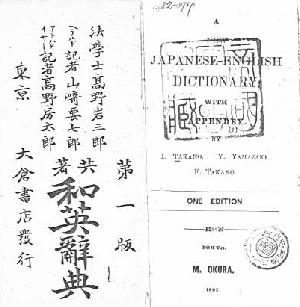 法學士高野岩三郎
記者山﨑要七郎
記者高野房太郎
共著
和英辭典
第一版
東京 大倉書店發行
A
JAPANESE-ENGLISH
DICTIONARY
WITH
APPENDEX
BY
I. TAKANO. Y. YAMAZAKI.
F. TAKANO.
ONE EDITION
TOKYO.
M. OKURA.